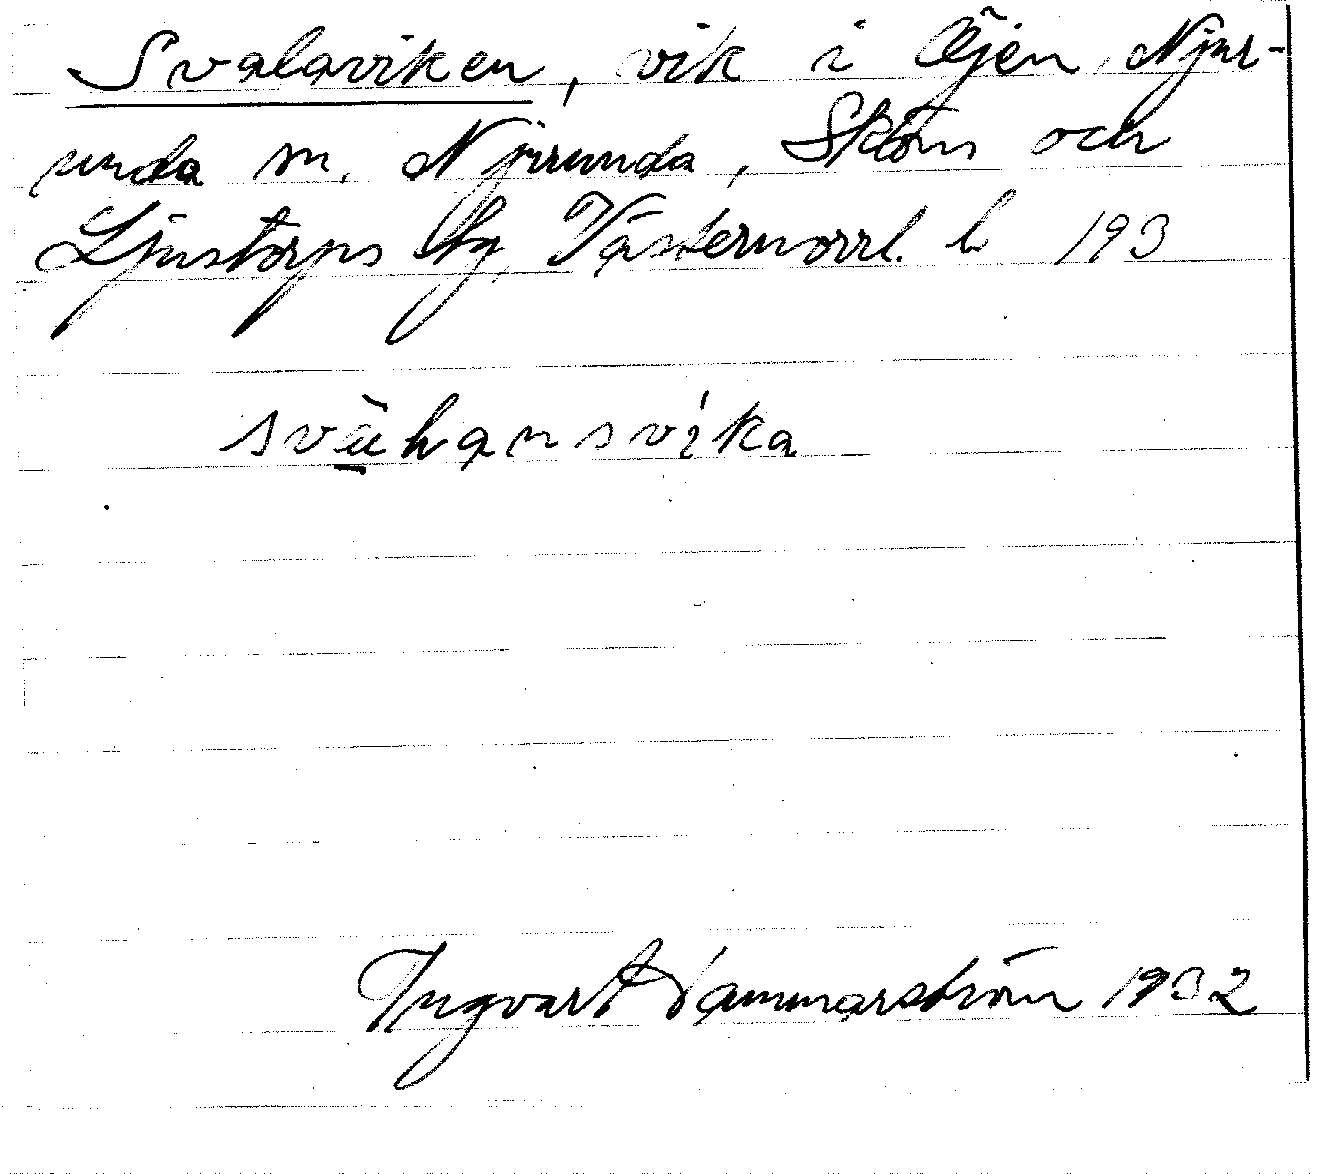 Svalaviken, vik i Öjen, Njur-
unda sn. Njurunda, Sköns och
Ljustorps tg, Västernorrl. l 193
Ingvar Hammarström 1932